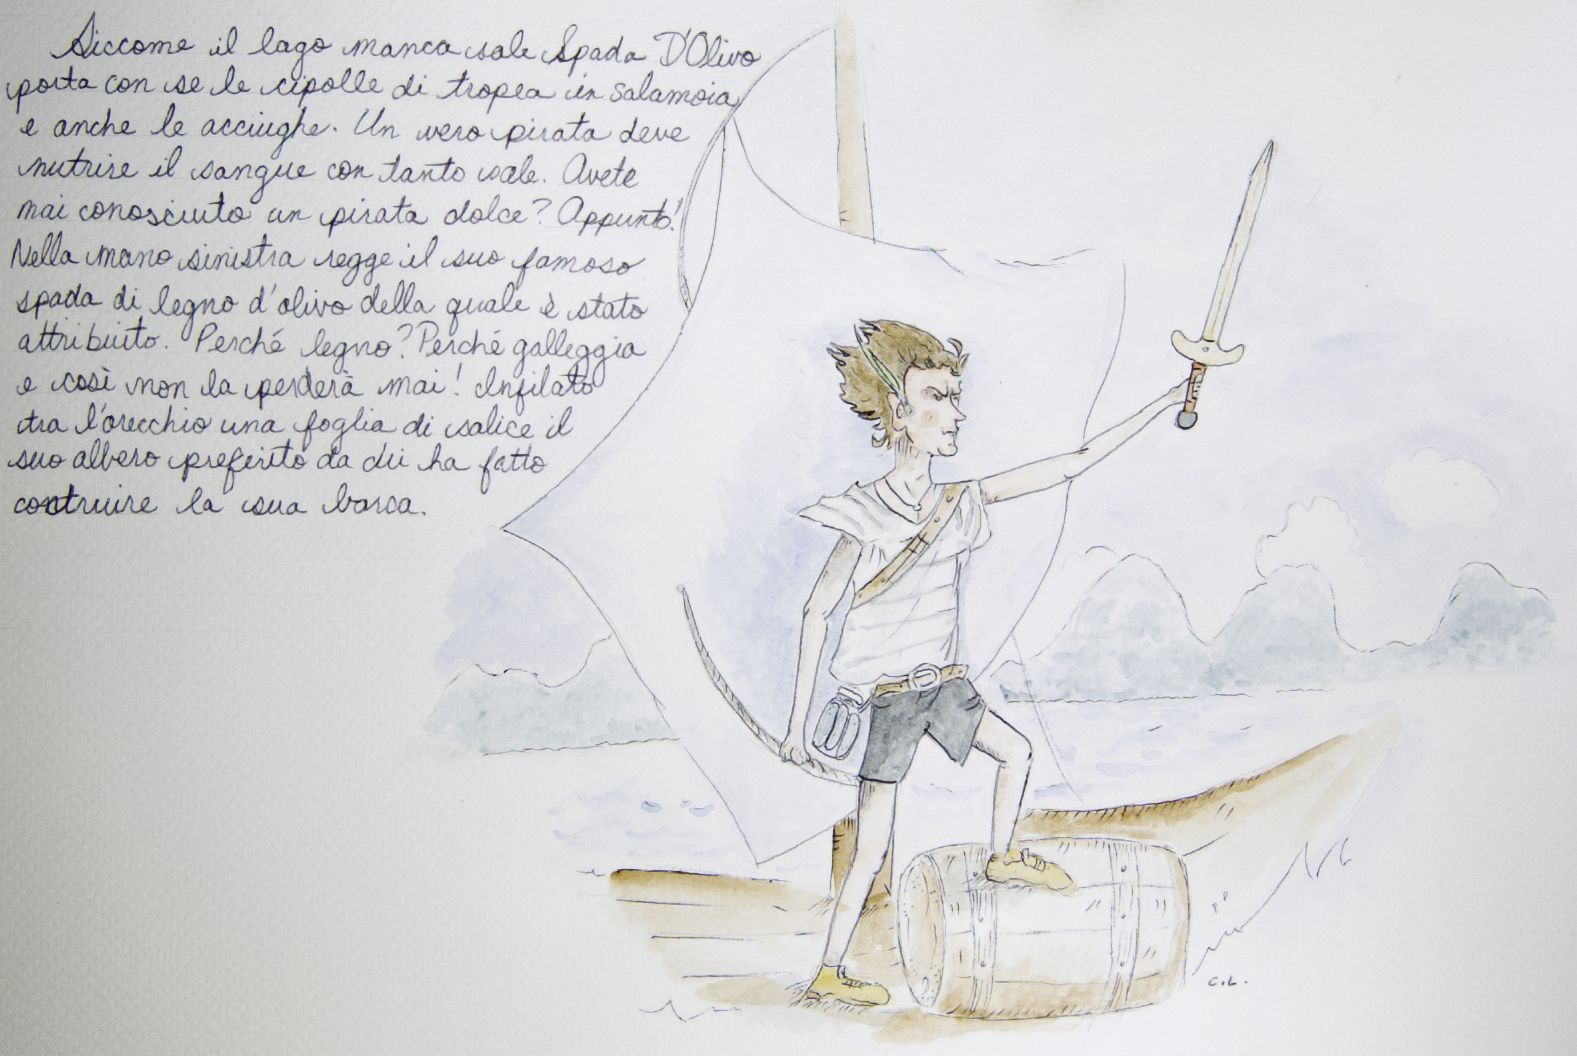 Siccome il lago manca sale Spada D'Olivo
porta con se le cipolle di tropea in salamoia
e anche le acciughe. Un vero pirata deve
nutrire il sangue con tanto sale. Avete
mai conosciuto un pirata dolce? Appunto!
Nella mano sinistra regge il suo famoso
spada di legno d'olivo della quale è stato
attribuito. Perché legno? Perché galleggia
e così non la perderà mai! Infilato
tra l'orecchio una foglia di salice il
suo albero preferito da cui ha fatto
costruire la sua barca.
C.L.